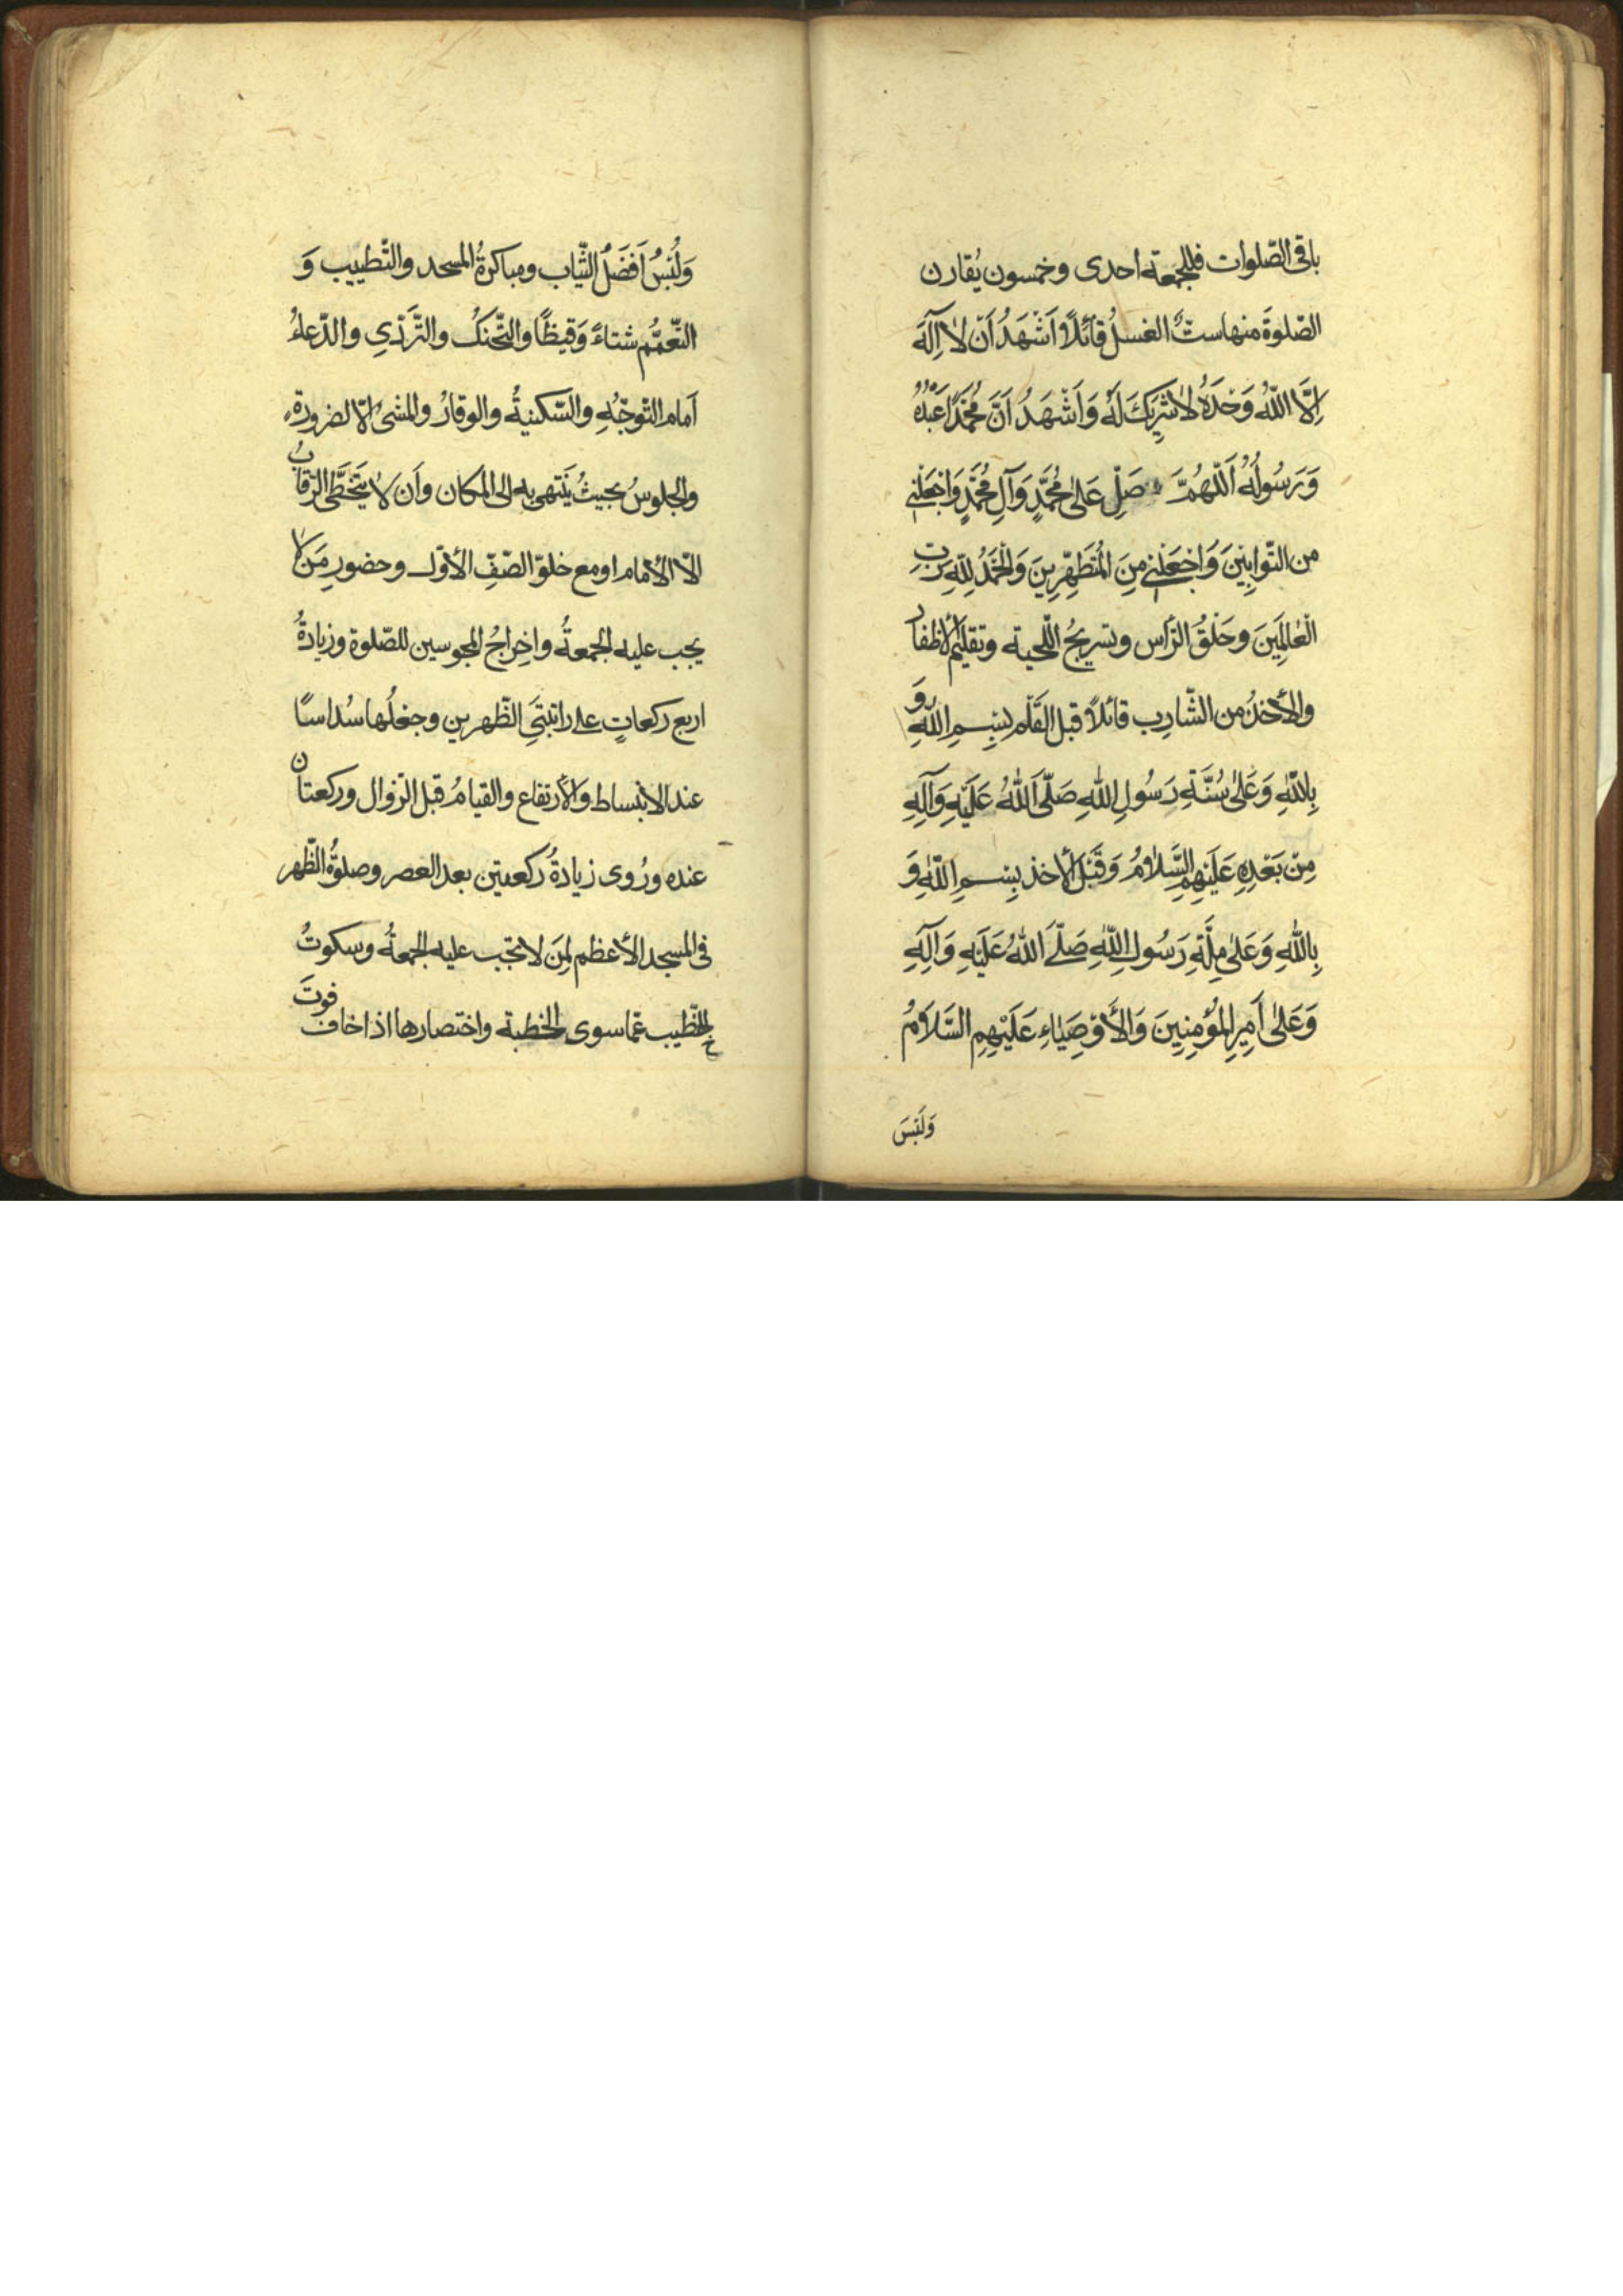 باقى الصّلوات فللجمعة احدى وخمسون يُقارن
الصّلوةَ منها ستٌّ الغسلُ قائلًا اَشْهَدُ اَنْ لاٰ اِلٰهَ
اِلَّا اللّٰهُ وَحْدَهُ لاٰ شَرِيكَ لَهُ وَاَشْهَدُ اَنَّ مُحَمَّدًا عَبْدُهُ
وَرَسُولُهُ اَللّٰهُمَّ صَلِّ عَلىٰ مُحَمَّدٍ وَآلِ مُحَمَّدٍ وَاجْعَلْنِي
من التَّوابِينَ وَاجْعَلْنِي مِنَ الْمُتَطَهِّرِينَ وَالْحَمْدُ لِلّٰهِ رَبِّ
الْعٰالَمِينَ وحَلْقُ الرّأس وتسريحُ اللّحية وتقليمُ الأظفار
والأخذُ من الشّارِب قائلًا قبل القَلْم بِسْمِ اللّٰهِ وَ
بِاللّٰهِ وَعَلىٰ سُنَّةِ رَسُولِ اللّٰهِ صَلَّى اللّٰهُ عَلَيْهِ وَآلِهِ
مِنْ بَعْدِهِ عَلَيْهِمُ السَّلاٰمُ وَقَبْلَ الأخذ بِسْمِ اللّٰهِ وَ
بِاللّٰهِ وَعَلىٰ مِلَّةِ رَسُولِ اللّٰهِ صَلَّى اللّٰهُ عَلَيْهِ وَآلِهِ
وَعَلىٰ اَمِيرِ الْمُؤْمِنِينَ وَالأَوْصِيٰاءِ عَلَيْهِمِ السَّلاَمُ
وَلُبْسُ
وَلُبْسُ اَفْضَلُ الثّياب ومباكرةُ المسجد والتّطييب وَ
التّعمّم شتاءً وَقيظًا والتّحنكُ والتَّرَدّي والدّعاءُ
اَمام التّوجّهِ والسّكينةُ والوقارُ والمشىُ الّا لضرورةٍ
والجلوسُ بحيثُ يَنتهى به الى المكان وأن لاٰ يَتَخَطَّى الرّقابَ
الّا الأمام او مع خلوّ الصّفّ الأوّل وحضورِ مَن لاٰ
يجب عليه الجمعةُ واخِراجُ المحبوسين للصّلوة وزيادةُ
اربع ركعاتٍ على راتبتَىِ الظّهرين وجعلُها سُداسًا
عند الانبساط وَالأرتفاع والقيامُ قبل الزّوال وركعتان
عنده ورُوى زيادةُ ركعتين بعد العصر وصلوةُ الظّهر
فى المسجد الأعظم لِمَن لا تجب عليه الجمعةُ وسكوتُ
الخطيب عمّا سوى الخطبة واختصارها اذا خاف فوتَ